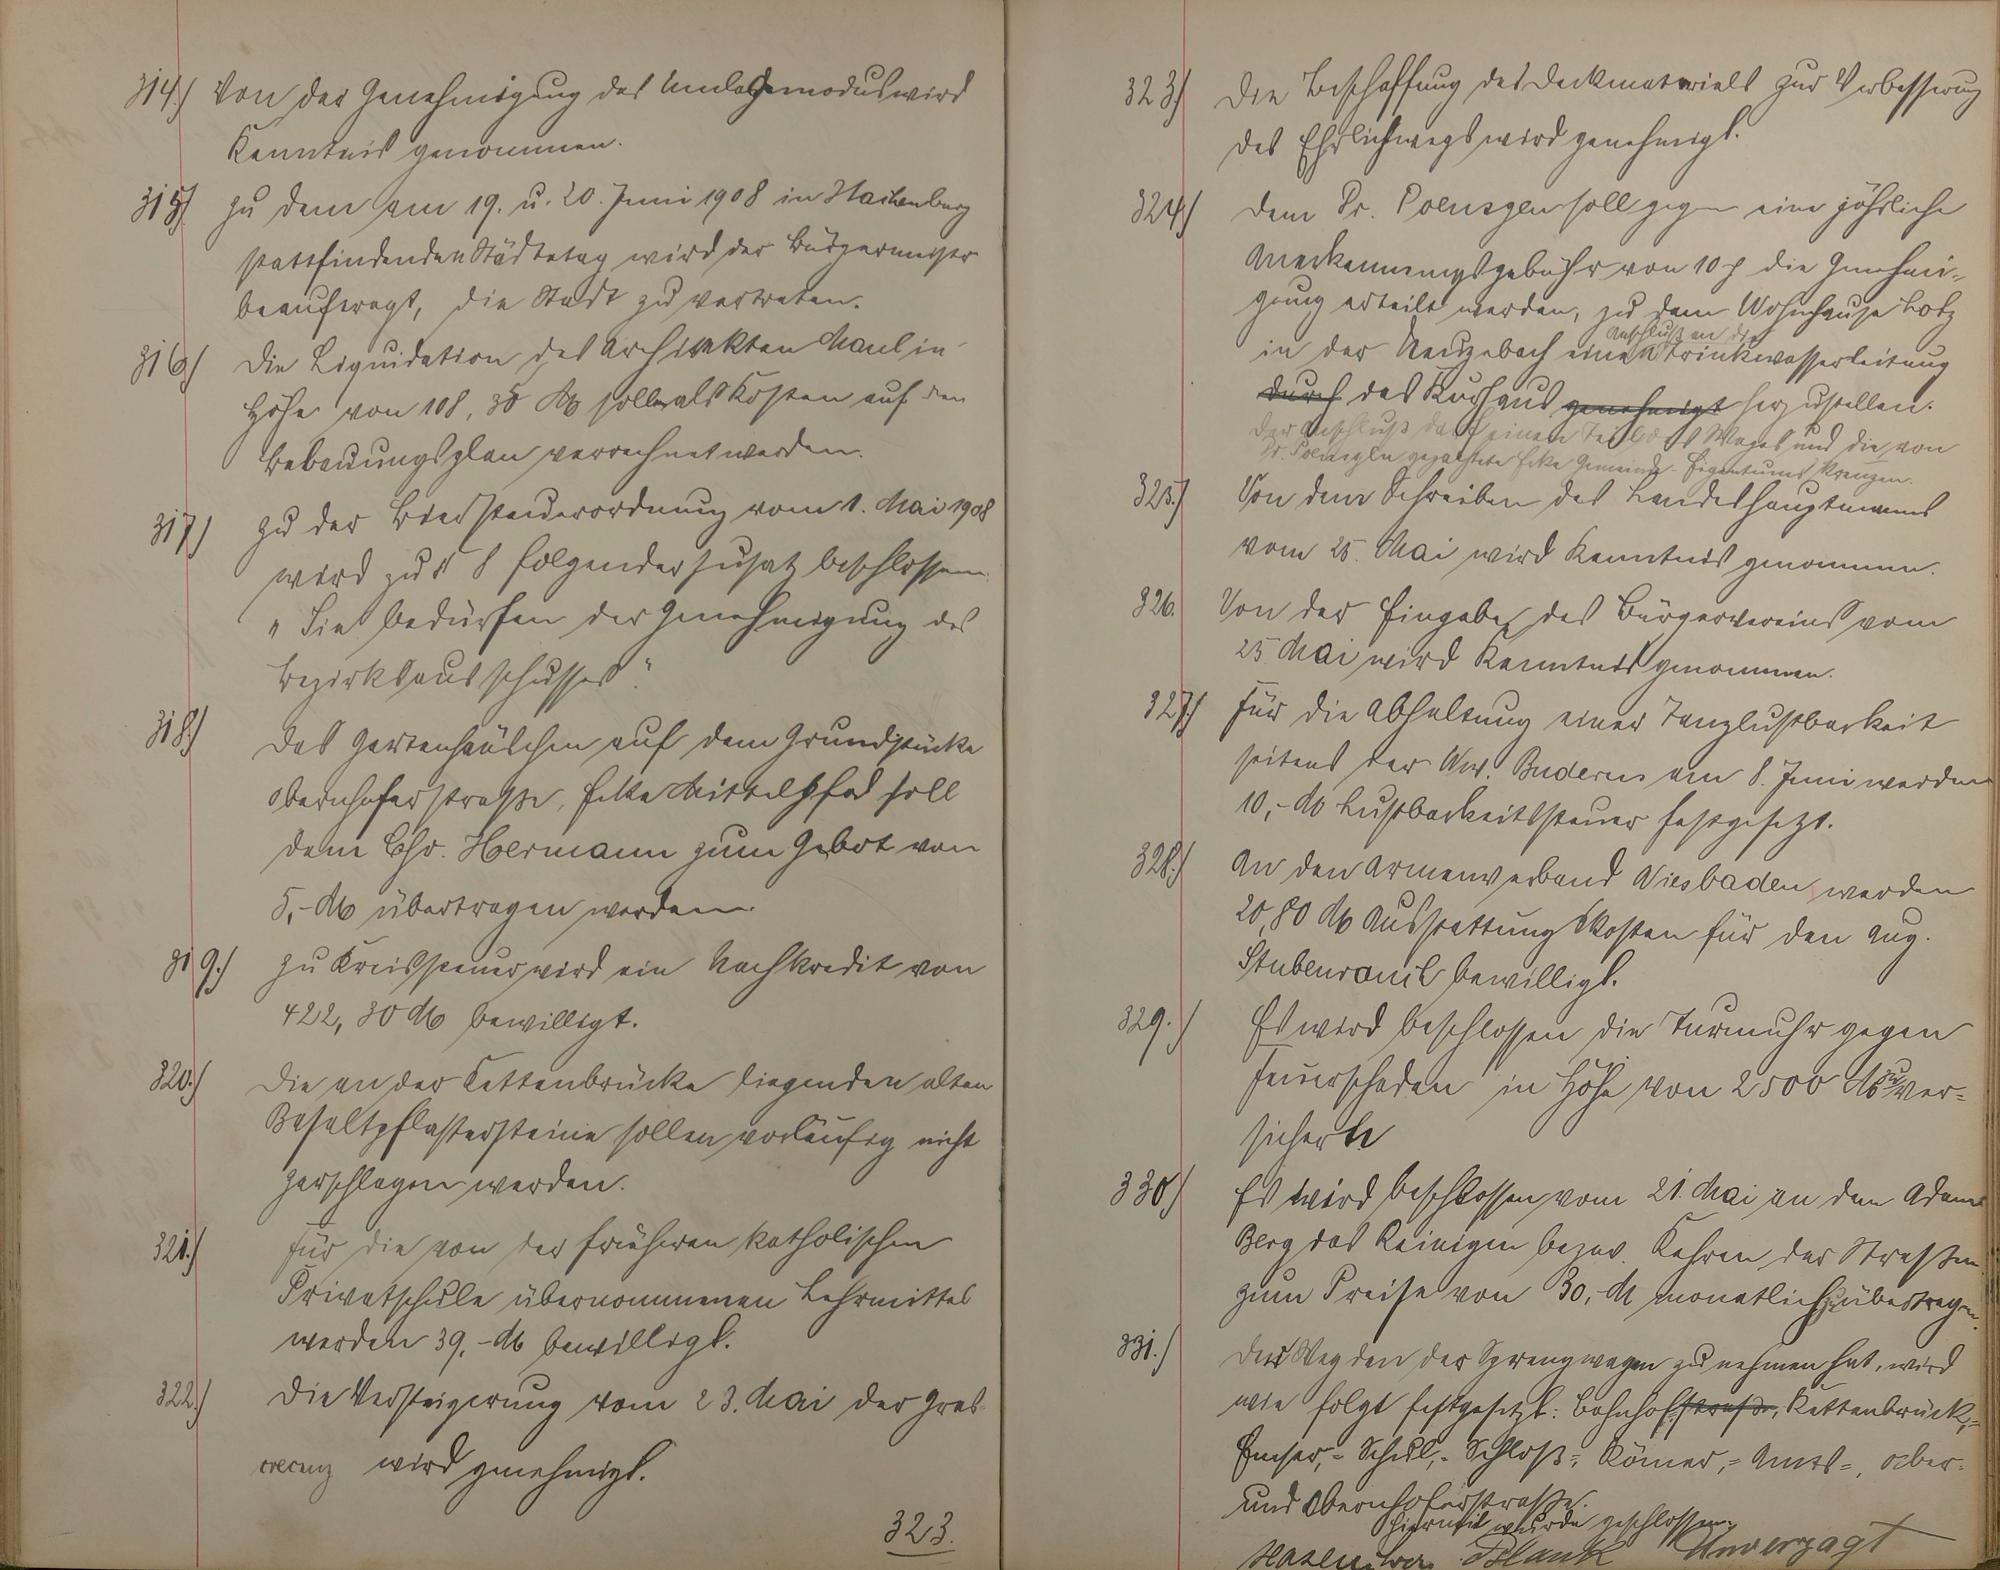 314.) Von der Genehmigung des Umlagemodus wird
Kenntnis genommen.
315.) Zu dem am 19. u. 20. Juni 1908 in Hachenburg
stattfindenden Städtetag wird der Bürgermeister
beauftragt, die Stadt zu vertreten.
316.) Die Liquidation des Architekten Maul in
Höhe von 108,35 M soll als Kosten auf den
Bebauungsplan verrechnet werden.
317.) Zu der Biersteuerordnung vom 1. Mai 1908
wird zu § 8 folgender Zusatz beschlossen
„Sie bedürfen der Genehmigung des
Bezirksausschusses."
318.) Das Gartenhäuschen auf dem Grundstücke
Obernhoferstraße, Ecke Mittelpfad soll
dem Chr. Hermann zum Gebot von
5,- M übertragen werden.
319.) Zu Kreissteuer wird ein Nachkredit von
422,30 M bewilligt.
320.) Die an der Kettenbrücke liegenden alten
Basaltpflastersteine sollen vorläufig nicht
zerschlagen werden.
321.) Für die von der früheren katholischen
Privatschule übernommenen Lehrmittel
werden 39,- M bewilligt.
322.) Die Versteigerung vom 23. Mai der Gras-
crecenz wird genehmigt.
323.
323.) Die Beschaffung des Deckmaterials zur Verbesserung
des Ehrlichwegs wird genehmigt.
324.) Dem Dr. Poensgen soll gegen eine jährliche
Anerkennungsgebühr von 10 die Genehmi-
gung erteilt werden, zu dem Wohnhause Lotz
Anschluß an die
in der Neuzebach einen Trinkwasserleitung
durch das Kurhaus genehmigt herzustellen.
Der Anschluß darf einen Teil des Weges und die von
Dr. Poensgen gepachtete Ecke Gemeinde-Eigentums kreuzen.
325.) Von dem Schreiben des Landeshauptmanns
vom 25. Mai wird Kenntnis genommen.
326. Von der Eingabe des Bürgervereins vom
25. Mai wird Kenntnis genommen.
327.) Für die Abhaltung einer Tanzlustbarkeit
seitens der Ww. Buderus am 8. Juni werden
10,- M Lustbarkeitssteuer festgesetzt.
328.) An den Armenverband Wiesbaden werden
20,80 M Ausstattungskosten für den Aug.
Stubenrauch bewilligt.
329.) Es wird beschlossen die Turmuhr gegen
Feuerschaden in Höhe von 2500 M zu ver-
sichern
330.) Es wird beschlossen vom 21. Mai an dem Adam
Berg das Reinigen bezw. Kehren der Straßen
zum Preise von 30,- M monatlich zu übertragen.
331.) Der Weg den der Sprengwagen zu nehmen hat, wird
wie folgt festgesetzt: Bahnhofstraße, Kettenbrück,-
Emser,- Schul,- Schloß-, Römer,- Amts-, Ober-
und Obernhoferstraße.
Hiermit wurde geschlossen.
Blank Unverzagt